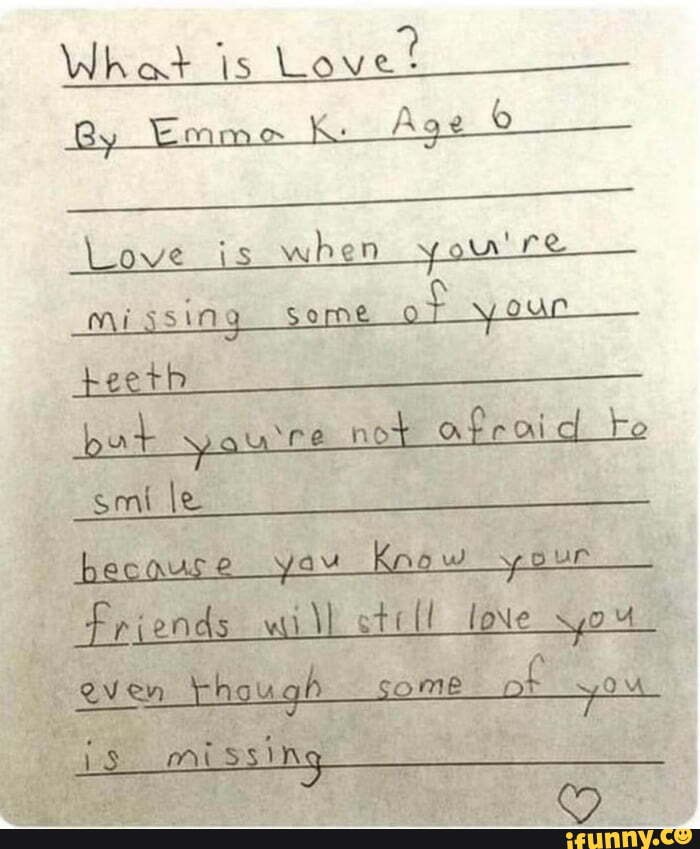 What is Love?
By Emma K. Age 6
Love is when you're
missing some of your
teeth
but you're not afraid to
smile
because you know your
friends will still love you
even though some of you
is missing
ifunny.co